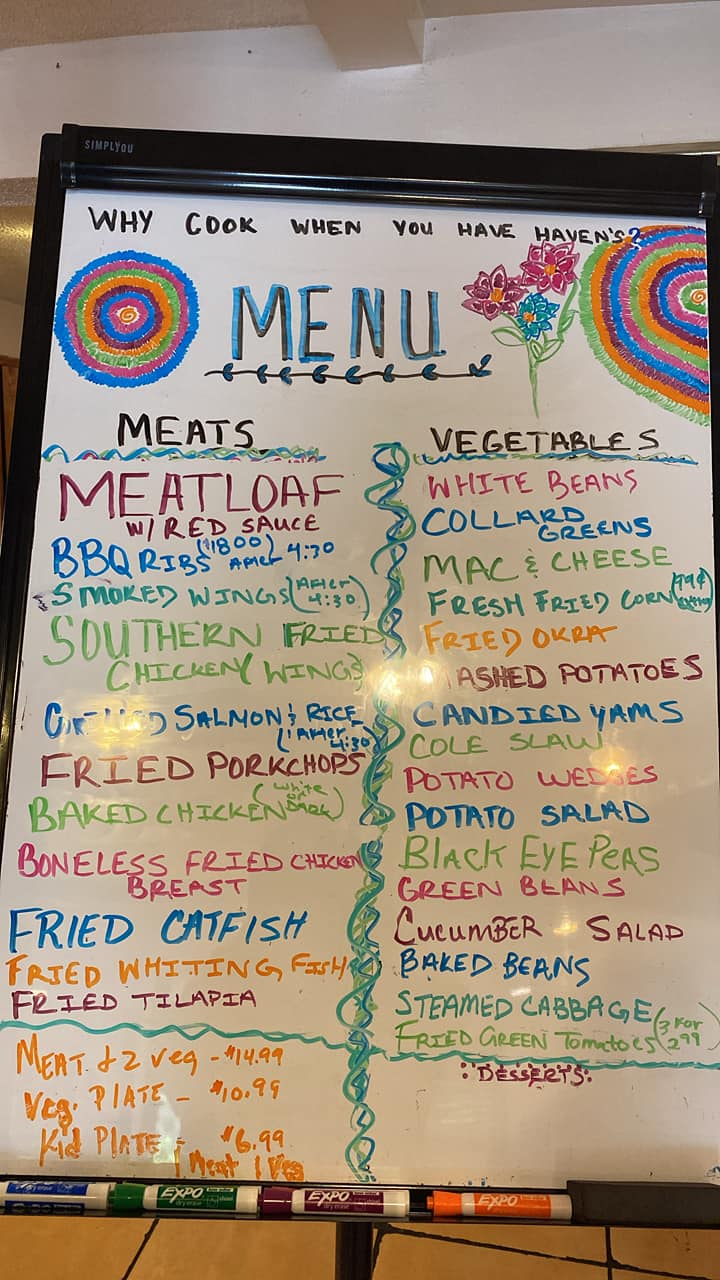 SIMPLYOU
WHY COOK WHEN YOU HAVE HAVEN'S?
MENU
MEATS
MEATLOAF
W/ RED SAUCE
BBQ RIBS (1800) AFTER 4:30
SMOKED WINGS (AFTER 4:30)
SOUTHERN FRIED
CHICKEN (WINGS)
GRILLED SALMON & RICE
(AFTER 4:30)
FRIED PORKCHOPS
BAKED CHICKEN (White or DARK)
BONELESS FRIED CHICKEN
BREAST
FRIED CATFISH
FRIED WHITING FISH
FRIED TILAPIA
MEAT & 2 veg - $14.99
Veg. PLATE - $10.99
Kid PLATE - $6.99
1 Meat 1 Veg
VEGETABLES
WHITE BEANS
COLLARD
GREENS
MAC & CHEESE
FRESH FRIED CORN (99¢ extra)
FRIED OKRA
MASHED POTATOES
CANDIED YAMS
COLE SLAW
POTATO WEDGES
POTATO SALAD
BLACK EYE PEAS
GREEN BEANS
CUCUMBER SALAD
BAKED BEANS
STEAMED CABBAGE
FRIED GREEN TOMATOES (3 FOR 2.99)
DESSERTS
EXPO
EXPO dry erase
EXPO dry erase
EXPO